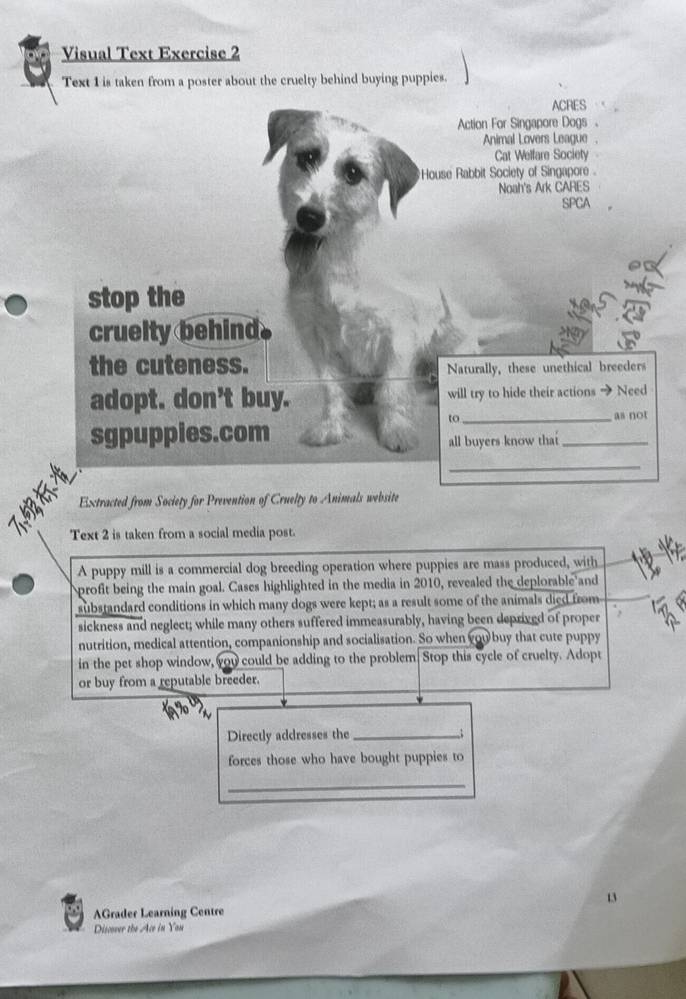 Visual Text Exercise 2
Text 1 is taken from a poster about the cruelty behind buying puppies.
ACRES
Action For Singapore Dogs
Animal Lovers League
Cat Welfare Society
House Rabbit Society of Singapore
Noah's Ark CARES
SPCA
stop the
cruelty behind
the cuteness.
adopt. don't buy.
sgpuppies.com
不道德
Naturally, these unethical breeders
will try to hide their actions → Need
to ____________ as not
all buyers know that ____________
____________
不够标准
Extracted from Society for Prevention of Cruelty to Animals website
Text 2 is taken from a social media post.
A puppy mill is a commercial dog breeding operation where puppies are mass produced, with
profit being the main goal. Cases highlighted in the media in 2010, revealed the deplorable and
substandard conditions in which many dogs were kept; as a result some of the animals died from
sickness and neglect; while many others suffered immeasurably, having been deprived of proper
nutrition, medical attention, companionship and socialisation. So when you buy that cute puppy
in the pet shop window, you could be adding to the problem. Stop this cycle of cruelty. Adopt
or buy from a reputable breeder.
Directly addresses the ____________;
forces those who have bought puppies to
____________
13
AGrader Learning Centre
Discover the Ace in You